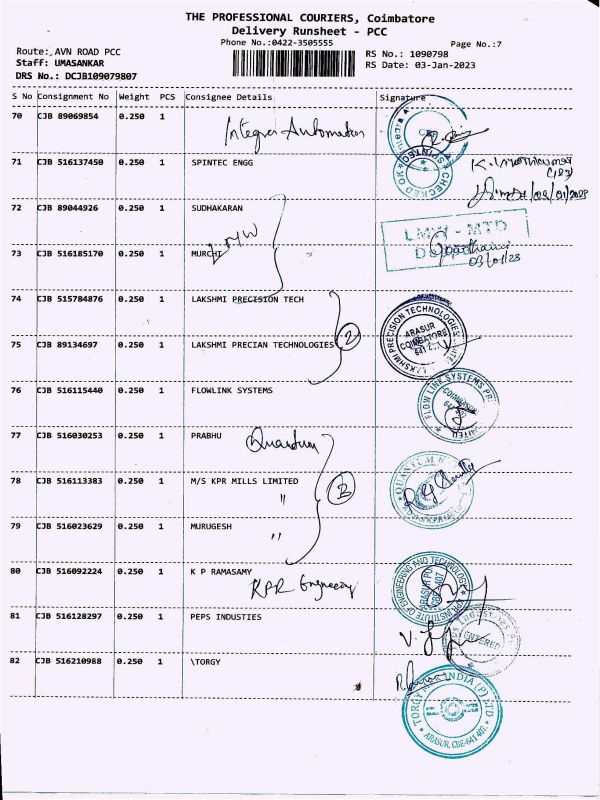 THE PROFESSIONAL COURIERS, Coimbatore
Delivery Runsheet - PCC
Phone No.:0422-3505555
Page No.:7
Route: AVN ROAD PCC
Staff: UMASANKAR
DRS No.: DCJB109079807
RS No.: 1090798
RS Date: 03-Jan-2023
S No Consignment No Weight PCS Consignee Details Signature
70 CJB 89069854 0.250 1
Integra Automation
71 CJB 516137450 0.250 1 SPINTEC ENGG
CHECKED OK
72 CJB 89044926 0.250 1 SUDHAKARAN
LMW
LMW - MTD
73 CJB 516185170 0.250 1 MURCHI
03/01/23
74 CJB 515784876 0.250 1 LAKSHMI PRECISION TECH
LAKSHMI PRECISION TECHNOLOGIES
ARASUR
COIMBATORE
75 CJB 89134697 0.250 1 LAKSHMI PRECIAN TECHNOLOGIES
2
76 CJB 516115440 0.250 1 FLOWLINK SYSTEMS
FLOW LINK SYSTEMS
77 CJB 516030253 0.250 1 PRABHU
Quantum
78 CJB 516113383 0.250 1 M/S KPR MILLS LIMITED
"
79 CJB 516023629 0.250 1 MURUGESH
"
80 CJB 516092224 0.250 1 K P RAMASAMY
KPR Engineering
INSTITUTE OF ENGINEERING AND TECHNOLOGY
81 CJB 516128297 0.250 1 PEPS INDUSTIES
ENTERED
82 CJB 516210988 0.250 1 \TORGY
INDIA (P) LTD
ARASUR, CBE-641 407.